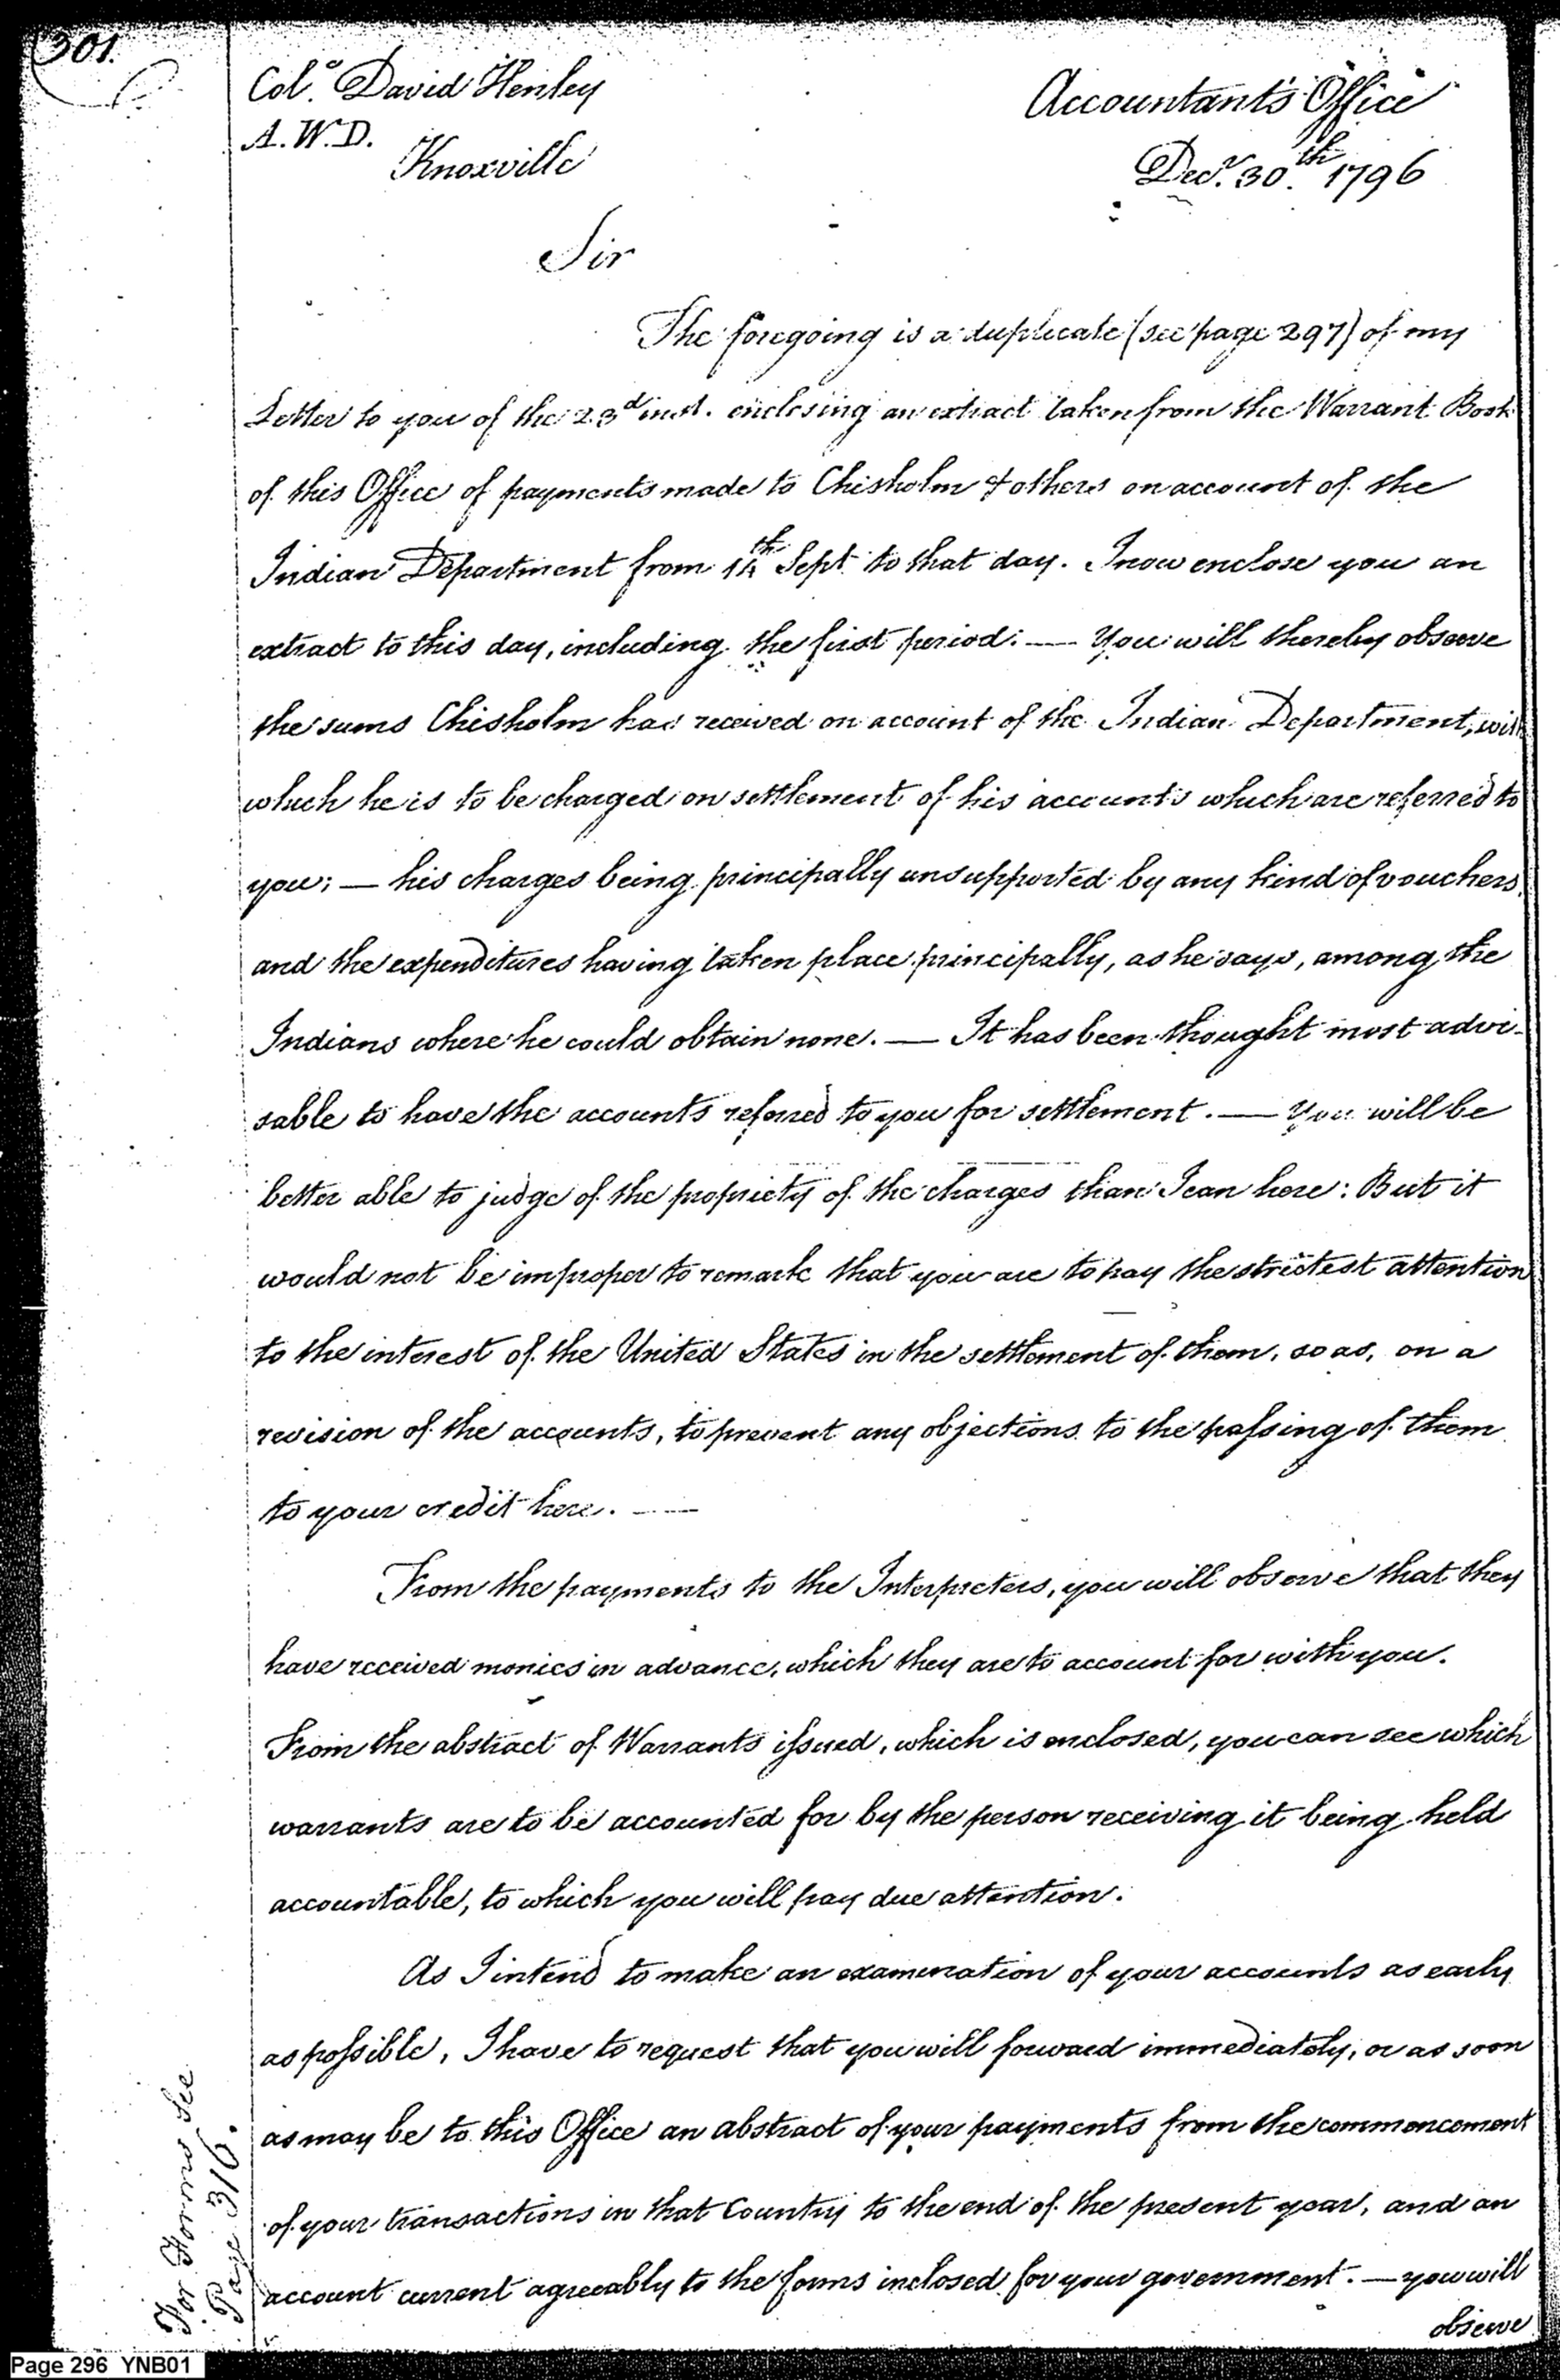 301.
Colo. David Henley
A.W.D.
Knoxville
Accountant's Office
Decr. 30th. 1796
Sir
The foregoing is a duplicate (see page 297) of my
Letter to you of the 23d inst. enclosing an extract taken from the Warrant Book
of this Office of payments made to Chisholm & others on account of the
Indian Department from 14th Sept. to that day. I now enclose you an
extract to this day, including the first period: — You will thereby observe
the sums Chisholm has received on account of the Indian Department, with
which he is to be charged on settlement of his accounts which are referred to
you; — his charges being principally unsupported by any kind of vouchers
and the expenditures having taken place principally, as he says, among the
Indians where he could obtain none. — It has been thought most advi-
sable to have the accounts referred to you for settlement. — You will be
better able to judge of the propriety of the charges than I can here: But it
would not be improper to remark that you are to pay the strictest attention
to the interest of the United States in the settlement of them, so as, on a
revision of the accounts, to prevent any objections to the passing of them
to your credit here. —
From the payments to the Interpreters, you will observe that they
have received monies in advance, which they are to account for with you.
From the abstract of Warrants issued, which is enclosed, you can see which
warrants are to be accounted for by the person receiving it being held
accountable, to which you will pay due attention.
As I intend to make an examination of your accounts as early
as possible, I have to request that you will forward immediately, or as soon
as may be to this Office an abstract of your payments from the commencement
of your transactions in that Country to the end of the present year, and an
account current agreeably to the forms inclosed for your government. — you will
observe
For Forms See
Page 316.
Page 296 YNB01